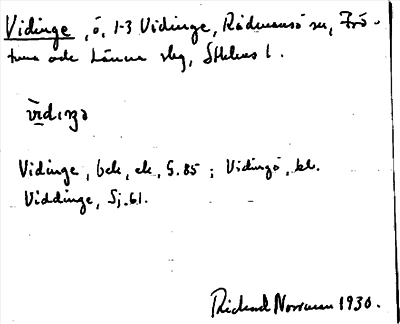 Vidinge, ö, 1-3 Vidinge, Rådmansö sn, Frö-
tuna och Länna slg, Sthlms l.
vidıŋə
Vidinge, bek, ek, S. 85; Vidingö, kl.
Viddinge, Sj. 61.
Rickard Norrman 1930.